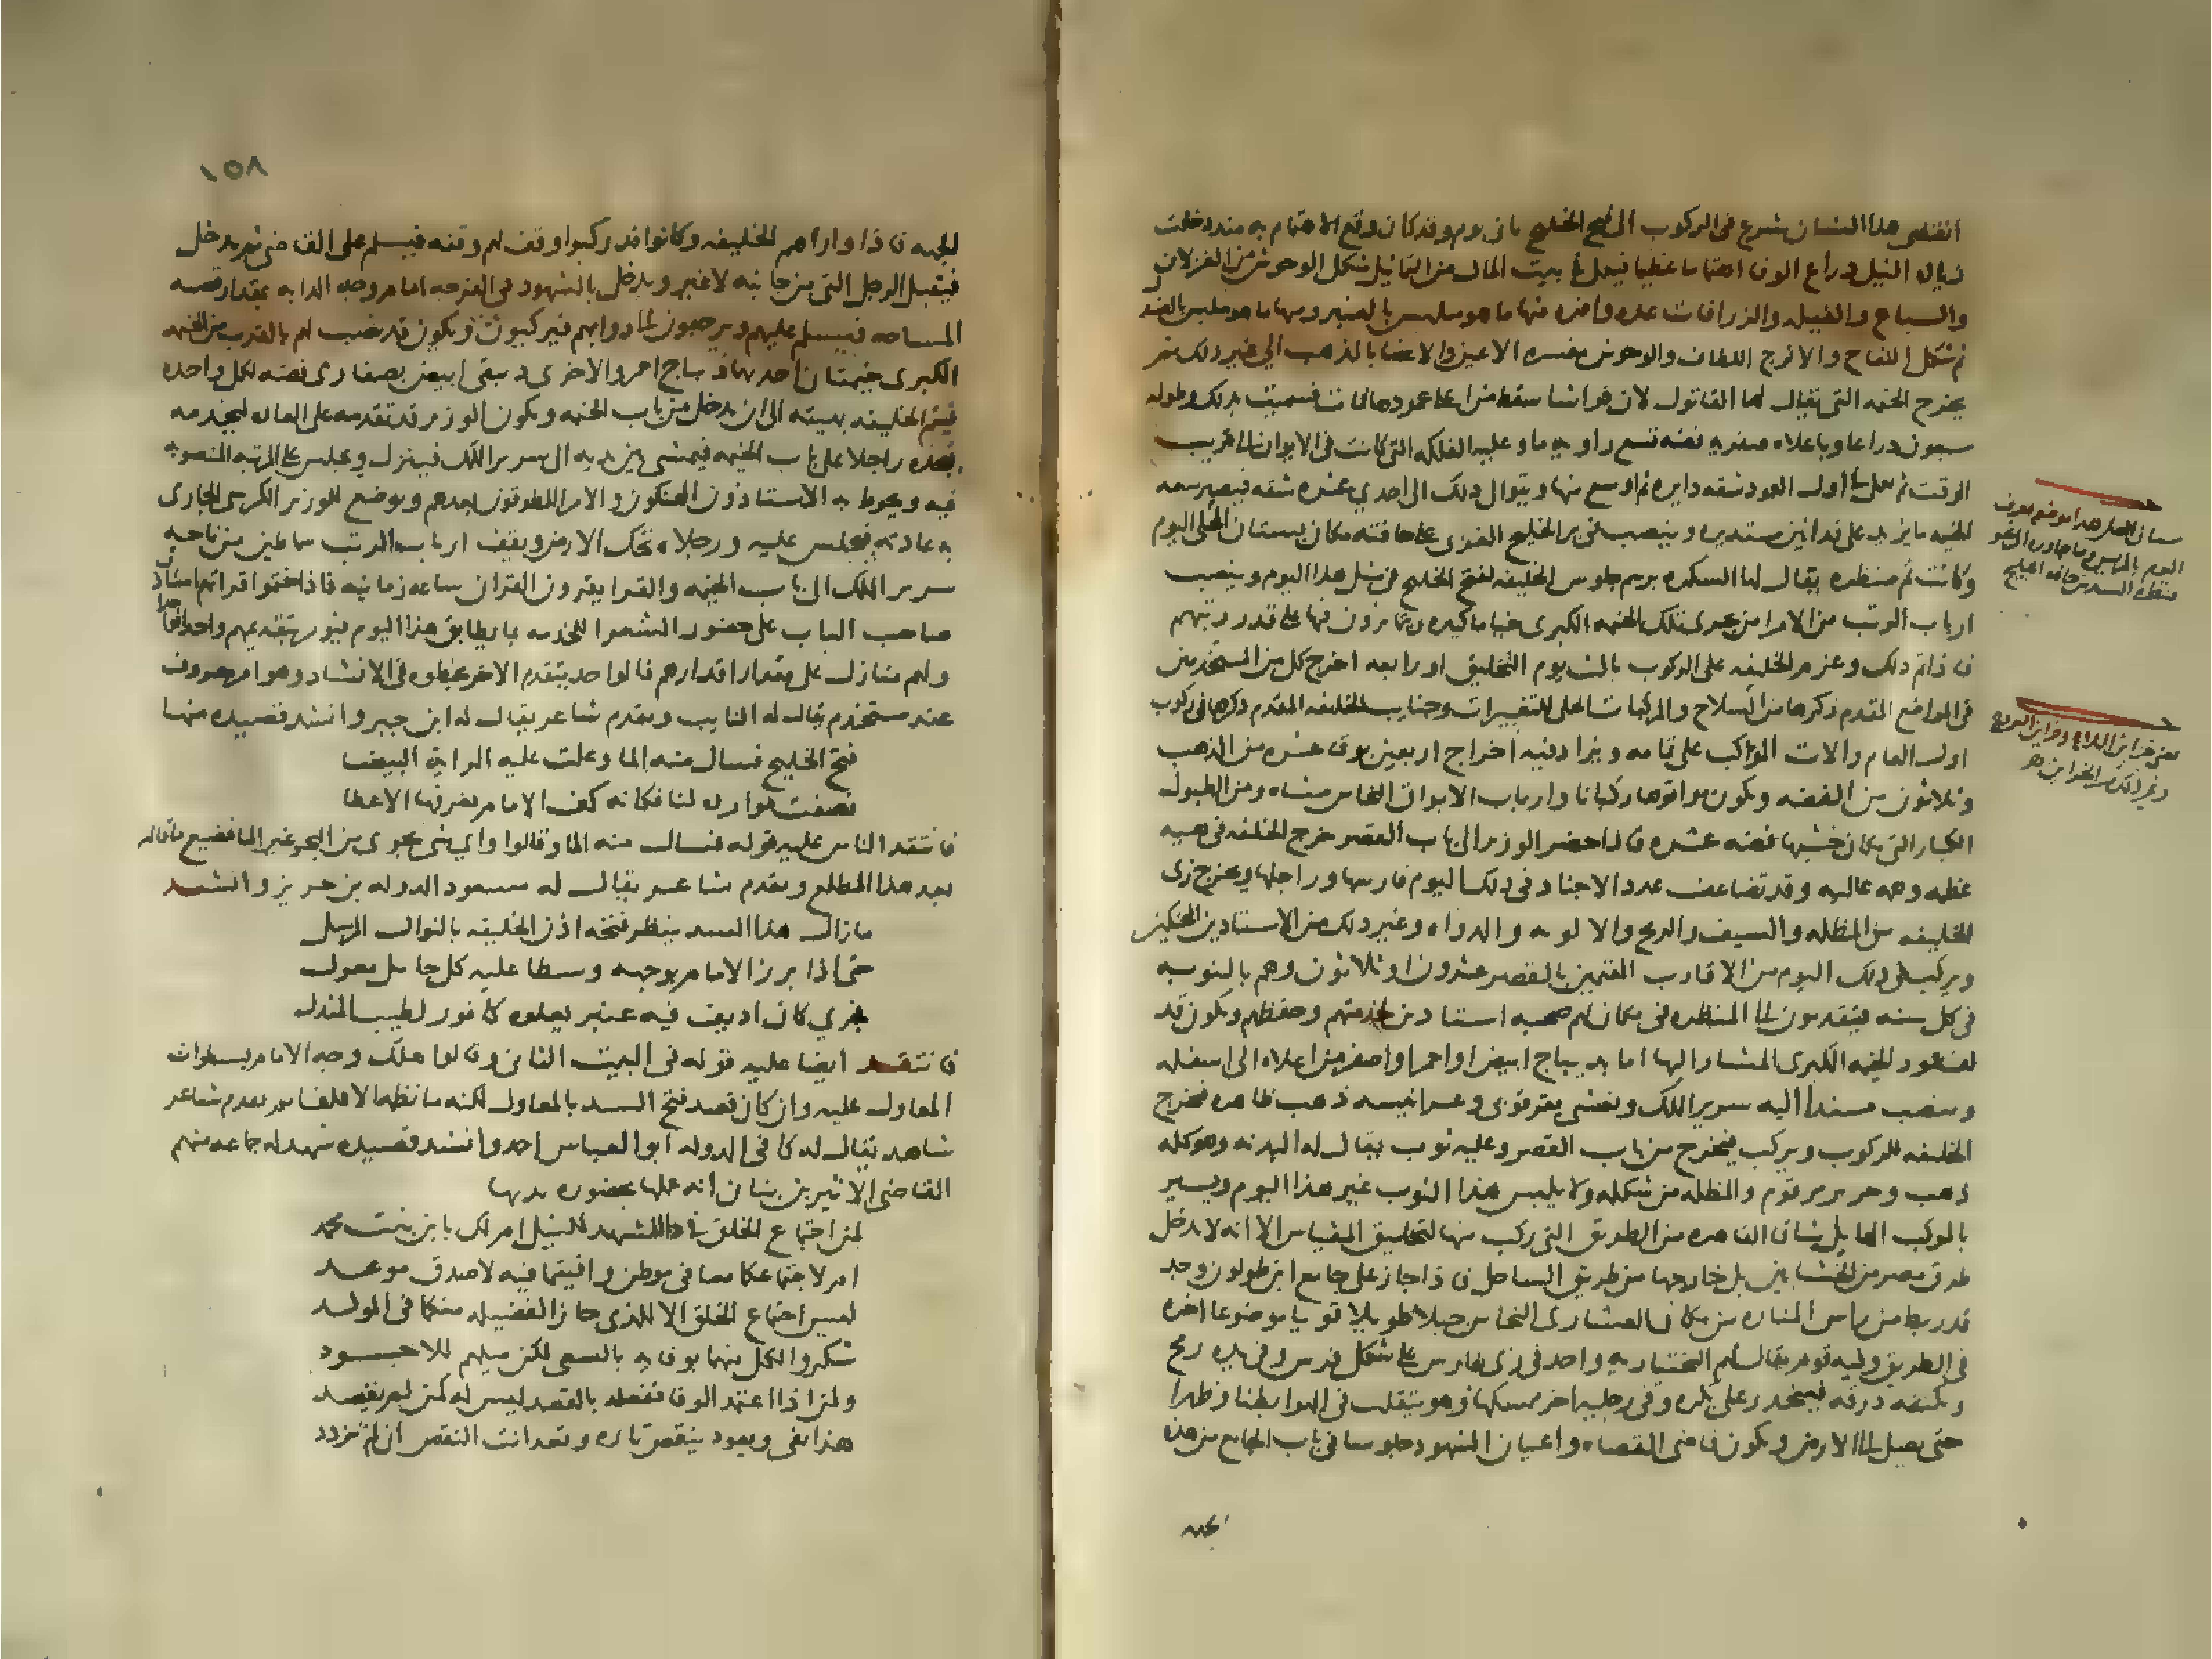 انقضى هذا الشان شرع فى الركوب الى فتح الخليج ثانى يوم وقد كان وقع الاهتمام به منذ دخلت
زيادة النيل ذراع الوفا اهتماما عظيما فيعمل فى بيت المال من التماثيل شكل الوحوش من الغزلان و
والسباع والفيله والزرافات عده وافره منها ما هو ملبس بالعنبر ومنها ما هو ملبس بالصندل
ثم شكل التفاح والاترج اللطاف والوحوش مفسره الاعين والاعضا بالذهب الى غير ذلك ثم
يخرج الخيمه التى يقال لها القاتول لان فراشا سقط من اعلا عمودها فمات فسميت بذلك وطوله
سبعون ذراعا وباعلاه صفريه فضه تسع راويه ماء وعليه الفلكه التى كانت فى الايوان الى قريب
الوقت ثم على اول العمود شقه دايره ثم اوسع منها ويتوالى ذلك الى احدى عشره شقه فيصير سعه
الخيمه ما يزيد على فدانين مستديره وينصب فى بر الخليج الغربى على حافته مكان بستان الخلى اليوم
وكانت ثم منظره يقال لها السكره برسم جلوس الخليفه لفتح الخليج فى مثل هذا اليوم وينصب
ارباب الرتب من الامرا من بحرى تلك الخيمه الكبرى خياما كثيره يتمايزون فيها على قدر رتبهم
فاذا تم ذلك وعزم الخليفه على الركوب ثالث يوم التخليق او رابعه اخرج كل من المستخدمين
فى المواضع المقدم ذكرها من السلاح والمركبات الحلى للتغييرات وجنايب الخليفه المقدم ذكرها فى ركوب
اول العام والات الموكب على تمامه ويزاد فيه اخراج اربعين بوقا عشره من الذهب
وثلاثون من الفضه ويكون بواقوها ركبانا وارباب الابواق النحاس مشاه ومن الطبول
الكبار التى مكان خشبها فضه عشره فاذا حضر الوزير الى باب القصر خرج الخليفه فى هيبه
عظيمه وهمه عاليه وقد تضاعف عدد الاجناد فى ذلك اليوم فارسها وراجلها ويخرج زى
الخليفه من المظله والسيف والرمح والالويه والدواه وغير ذلك من الاستادين المحنكين
ويركب فى ذلك اليوم من الاقارب المقيمين بالقصر عشرون او ثلاثون وهم بالنوبه
فى كل سنه فيتقدمون الى المنظره فى مكان لهم صحبه استادين لخدمتهم وحفظهم ويكون قد
لف عمود الخيمه الكبرى المشار اليها اما بديباج ابيض او احمر او اصفر من اعلاه الى اسفله
وينصب مسندا اليه سرير الملك ويغشى بقرقوبى وعرانيسه ذهب ظاهره فيخرج
الخليفه للركوب ويركب فيخرج من باب القصر وعليه ثوب يقال له البدنه وهو كله
ذهب وحرير مرقوم والمظله من شكله ولا يلبس هذا الثوب غير هذا اليوم ويسير
بالموكب الهايل شاق القاهره من الطريق التى ركب منها لتخليق المقياس الا انه لا يدخل
طرق مصر من الخشابين بل خارجها من طريق الساحل فاذا جاز على جامع ابن طولون وجد
قد ربط من راس المناره من مكان العشارى النحاس حبلا طويلا قويا موضوعا اخره
فى الطريق وفيه قوم يقال لهم التختباريه واحد فى زى فارس على شكل فرس وفى يده رمح
وبكتفه درقه فينحدر على بكره وفى رجليه اخر ممسكها وهو يتقلب فى الهوا بطنا وظهرا
حتى يصل الى الارض ويكون قاضى القضاه واعيان الشهود جلوسا فى باب الجامع من هذه
١٥٨
الجهه فاذا وازاهم الخليفه وكانوا قد ركبوا وقف لهم وقفه فيسلم على القاضى ثم يدخل
فيقبل الرجل التى من جانبه لا غير ويدخل بالشهود فى الفرجه امام وجه الدابه بمقدار قصبه
المساحه فيسلم عليهم ويرجعون الى دوابهم فيركبون ويكون قد نصب لهم بالقرب من الخيمه
الكبرى خيمتان احدهما ديباج احمر والاخرى دبيقى ابيض بصفارى فضه لكل واحده
فيتم الخليفه بهيبته الى ان يدخل من باب الخيمه ويكون الوزير قد تقدمه على العاده لخدمه
فيجده راجلا على باب الخيمه فيمشى بين يديه الى سرير الملك فينزل ويجلس على المرتبه المنصوبه
فيه ويحوط به الاستادون المحنكون والامرا المطوقون بعدهم ويوضع للوزير الكرسى الجارى
به عادته فيجلس عليه ورجلاه تحك الارض ويقف ارباب الرتب صافين من ناحيه
سرير الملك الى باب الخيمه والقرا يقرون القران ساعه زمانيه فاذا ختموا قراتهم استاذن
صاحب الباب على حضور الشعرا للخدمه بما يطابق هذا اليوم فيؤمر بتقديمهم واحدا واحدا
ولهم منازل على مقدار اقدارهم فالواحد يتقدم الاخر بخطوه فى الانشاد وهو امر معروف
عند مستخدم يقال له النايب وتقدم شاعر يقال له ابن جبر وانشد قصيده منها
فتح الخليج فسال منه الما وعلت عليه الرايه البيضا
فصفت موارده لنا فكانه كف الامام بعرفها الاعطا
فانتقد الناس عليه قوله فسال منه الما وقالوا واى شى يجرى من البحر غير الما فضيع ما قاله
بعد هذا المطلع وتقدم شاعر يقال له مسعود الدوله بن حريز وانشد
مازال هذا السد ينظر فتحه اذن الخليفه بالنوال المرسل
حتى اذا برز الامام بوجهه وسطا عليه كل حامل معول
فجرى كان اديف فيه عنبر يعلوه كافور لطيب المندل
فانتقد ايضا عليه قوله فى البيت الثانى وقالوا اهلك وجه الامام بسطوات
المعاول عليه وان كان قصد فتح السد بالمعاول لكنه ما نظمه الا قلقا ثم تقدم شاعر
شاهد يقال له كافى الدوله ابو العباس احمد وانشد قصيده شهد له جماعه منهم
القاضى الاثير بن بنان انه عملها بحضوره بديها
لمن اجتماع الخلق فى ذا المشهد للنيل ام لك يا ابن بنت محمد
ام لاجتماعكما معا فى موطن وافيتما فيه لاصدق موعد
ليس اجتماع الخلق الا للذى حاز الفضيله منكما فى المولد
شكروا لكل منهما لوفايه بالسعى لكن ميلهم للاجود
ولمن اذا اعتمد الوفا ففعله بالقصد ليس له كمن لم يقصد
هذا يفى ويعود ينقص تاره وتعد انت النقص ان لم تزدد